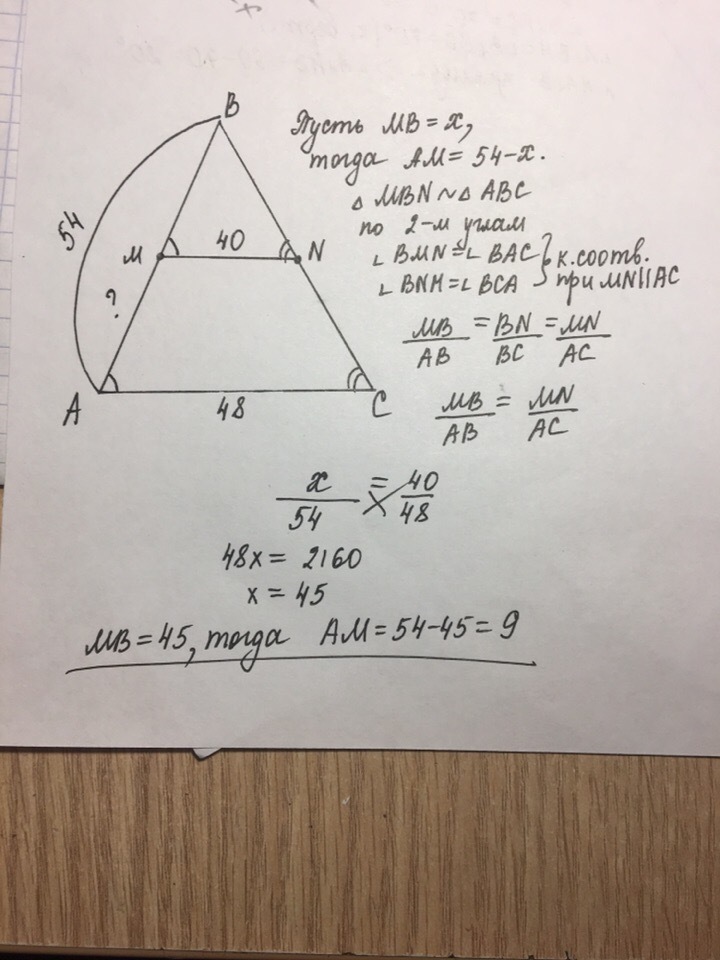 B
54
M
40
N
?
A
48
C
Пусть MB = x,
тогда AM = 54-x.
△ MBN ~ △ ABC
по 2-м углам
∠ BMN = ∠ BAC } к. соотв.
∠ BNM = ∠ BCA } при MN || AC
MB/AB = BN/BC = MN/AC
MB/AB = MN/AC
x/54 = 40/48
48x = 2160
x = 45
MB = 45, тогда AM = 54-45 = 9